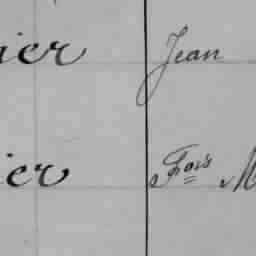 ier Jean
ier Fois M